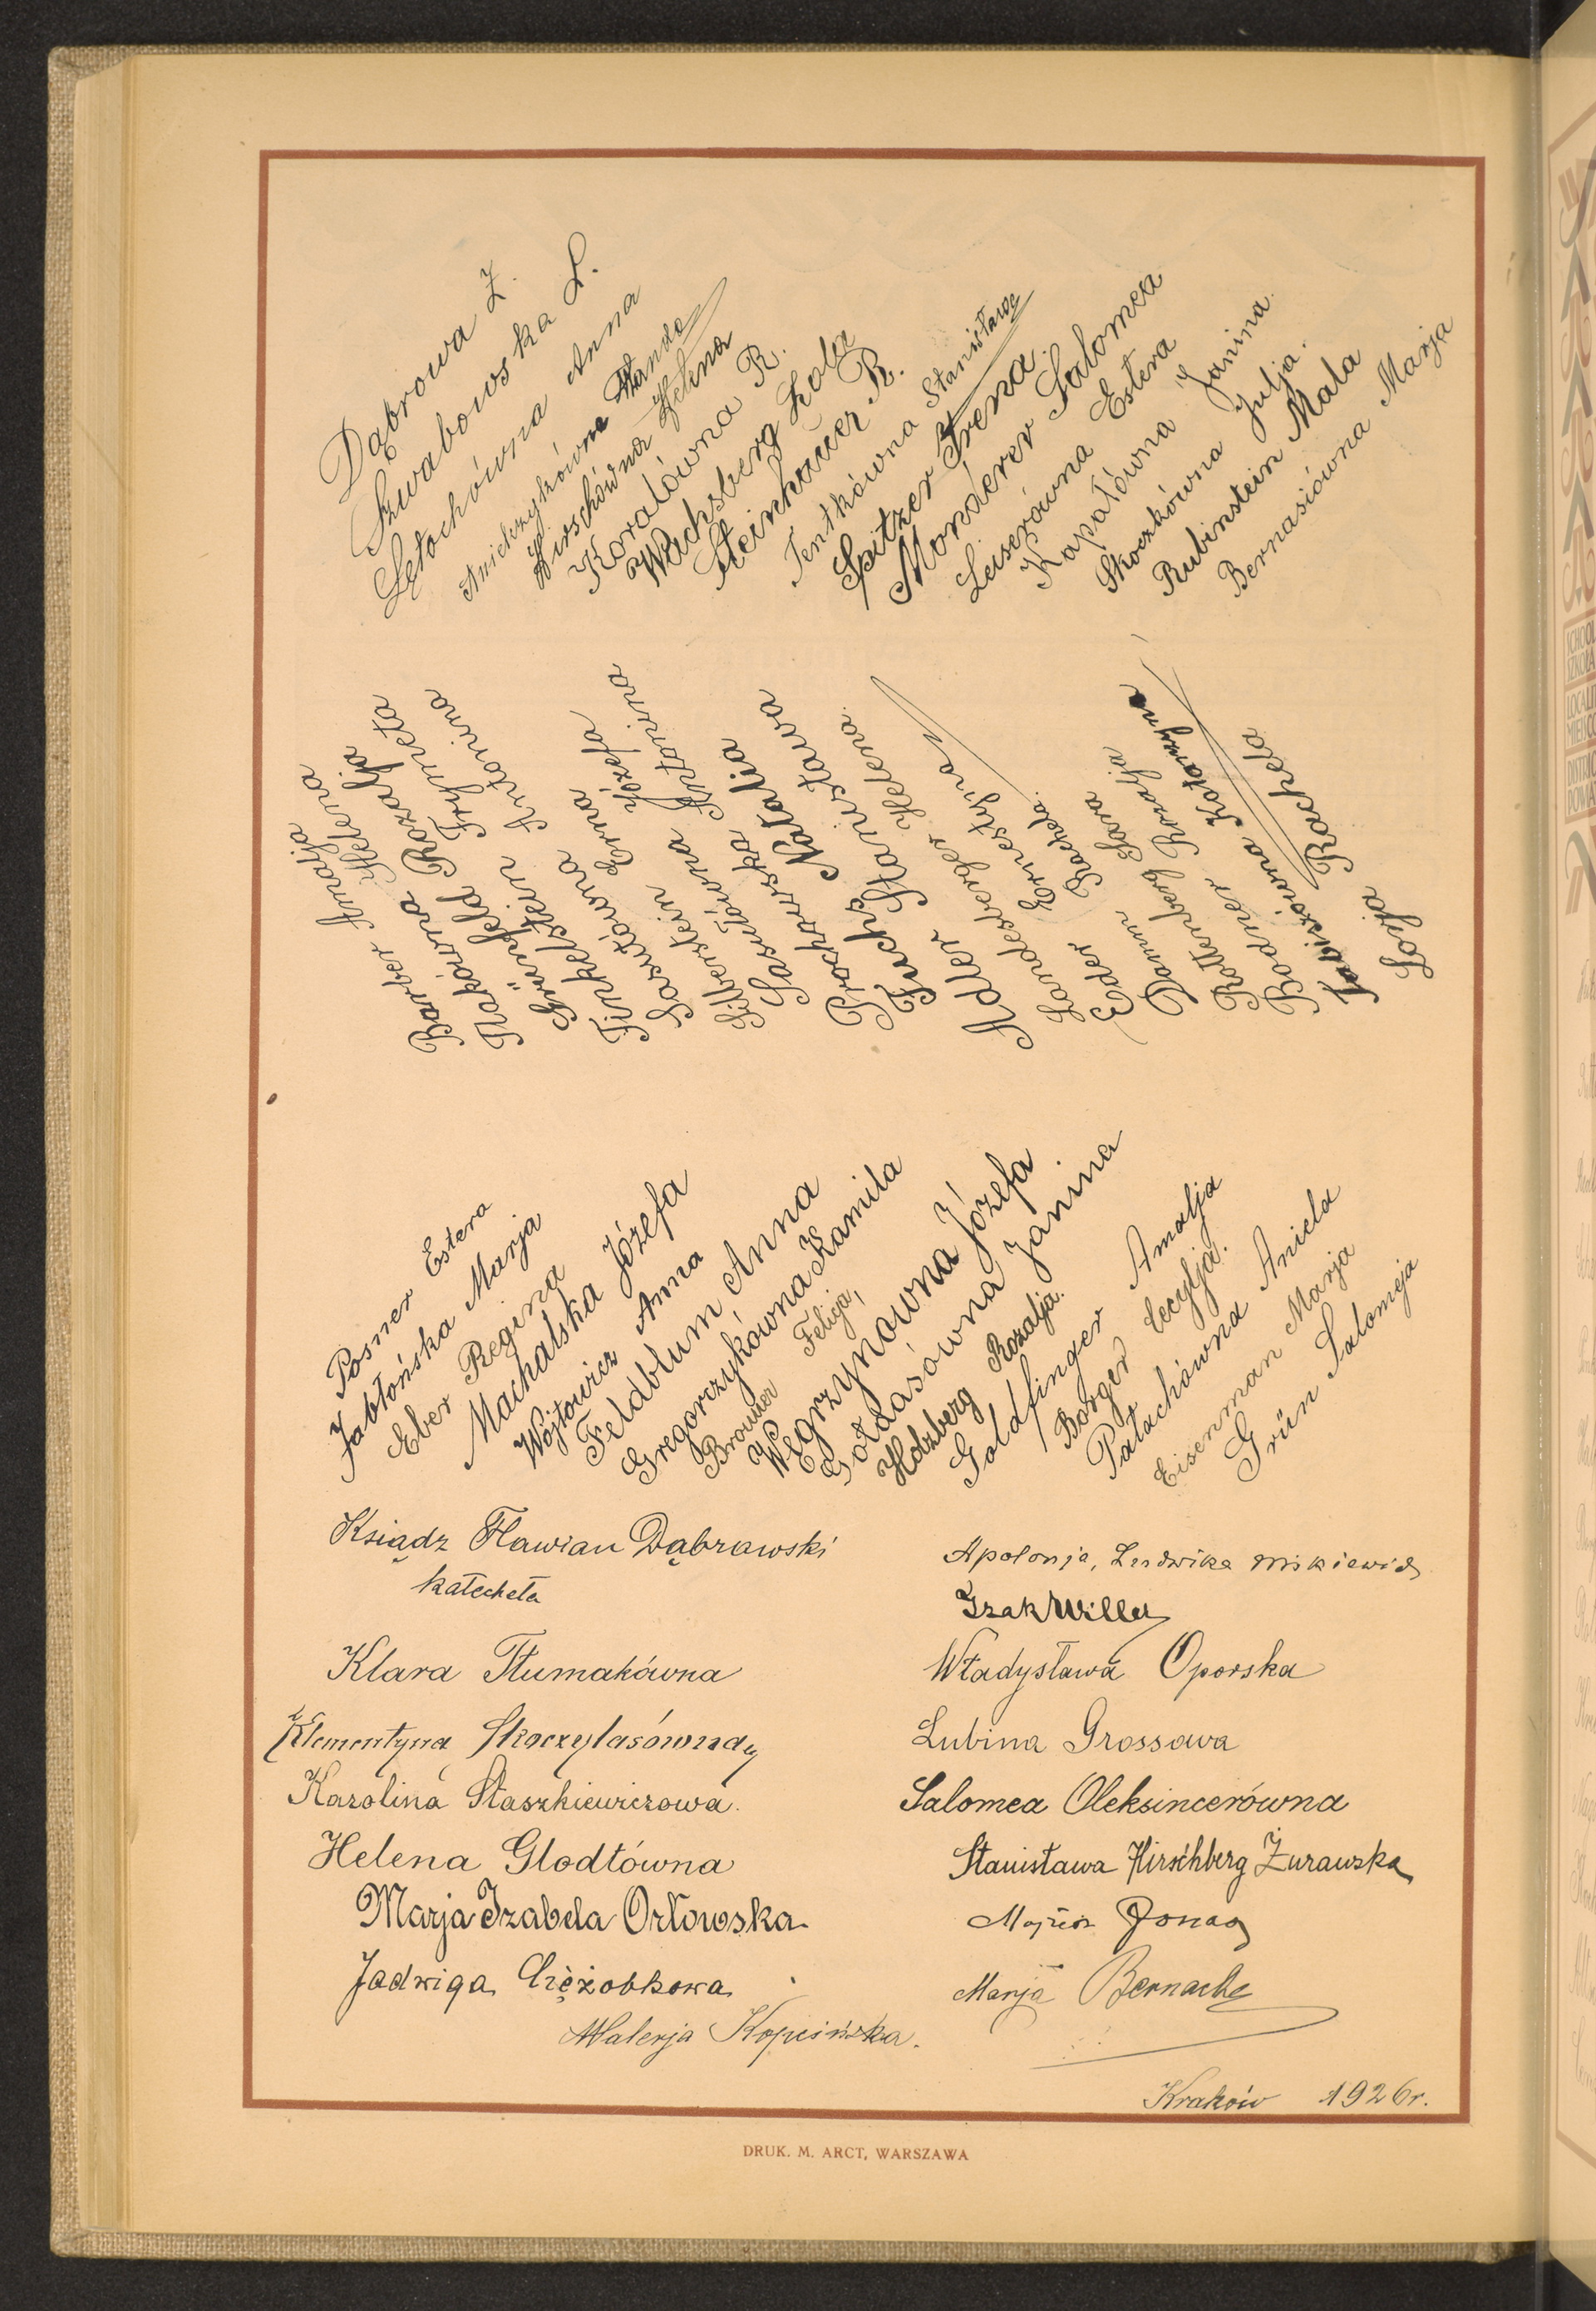 Dąbrowa Z.
Szwabowska L.
Sętochówna Anna
Hirschówna Helena
Koralówna R.
Wachsberg Lola
Steinhauer R.
Tentkówna Stanisława
Spitzer Irena.
Monderer Salomea
Leiserówna Estera
Kapałówna Janina
Skoczkówna Julja.
Rubinstein Mala
Bernasiówna Marja
Barber Amalja
Makówna Helena
Grünfeld Rozalja
Finkelstein Frymeta
Sasutówna Antonina
Silberstein Erna
Sasułówna Józefa
Prochowska Antonina
Fuchs Natalia
Adler Stanisława
Landesberger Helena.
Eder Ernestyna
Damm Rachela.
Rottenberg Sara
Bodner Rozalja
Katarzyna
Zofja Rachela
Posner Estera
Jabłońska Marja
Eber Regina
Machalska Józefa
Wójtowicz Anna
Feldblum Anna
Gregorczykówna Kamila
Brouner Felicja,
Węgrzynowna Józefa
Gołdasówna Janina
Holzberg Rozalja.
Goldfinger Amalja
Borger Cecylja.
Pałachówna Aniela
Eisenman Marja
Grün Salomeja
Ksiądz Flawian Dąbrawski
katecheta
Klara Tłumakówna
Klementyna Skoczylasówna
Karolina Staszkiewiczowa.
Helena Glodtówna
Marja Izabela Orłowska.
Jadwiga Ciężobkowa
Walerja Kopcińska.
Apolonja, Ludwika Miskiewicz
Izak Willer
Władysława Oporska
Lubina Grossowa
Salomea Oleksincerówna
Stanisława Hirschberg Żurawska
Jonas
Marja Bernacka
Kraków 1926r.
DRUK. M. ARCT, WARSZAWA